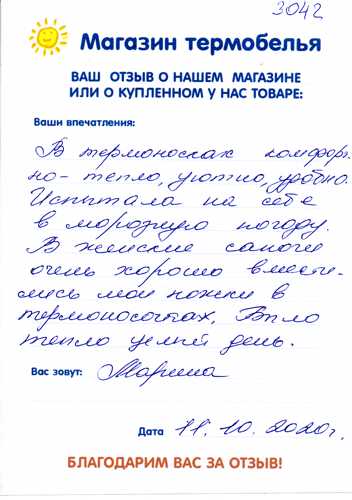 3042
Магазин термобелья
ВАШ ОТЗЫВ О НАШЕМ МАГАЗИНЕ
ИЛИ О КУПЛЕННОМ У НАС ТОВАРЕ:
Ваши впечатления:
В термоносках комфорт-
но - тепло, уютно, удобно.
Испытала на себе
в морозную погоду.
В женские сапоги
очень хорошо вмести-
лись мои ножки в
термоносочках. Было
тепло целый день.
Вас зовут: Марина
Дата 11.10.2020г.
БЛАГОДАРИМ ВАС ЗА ОТЗЫВ!